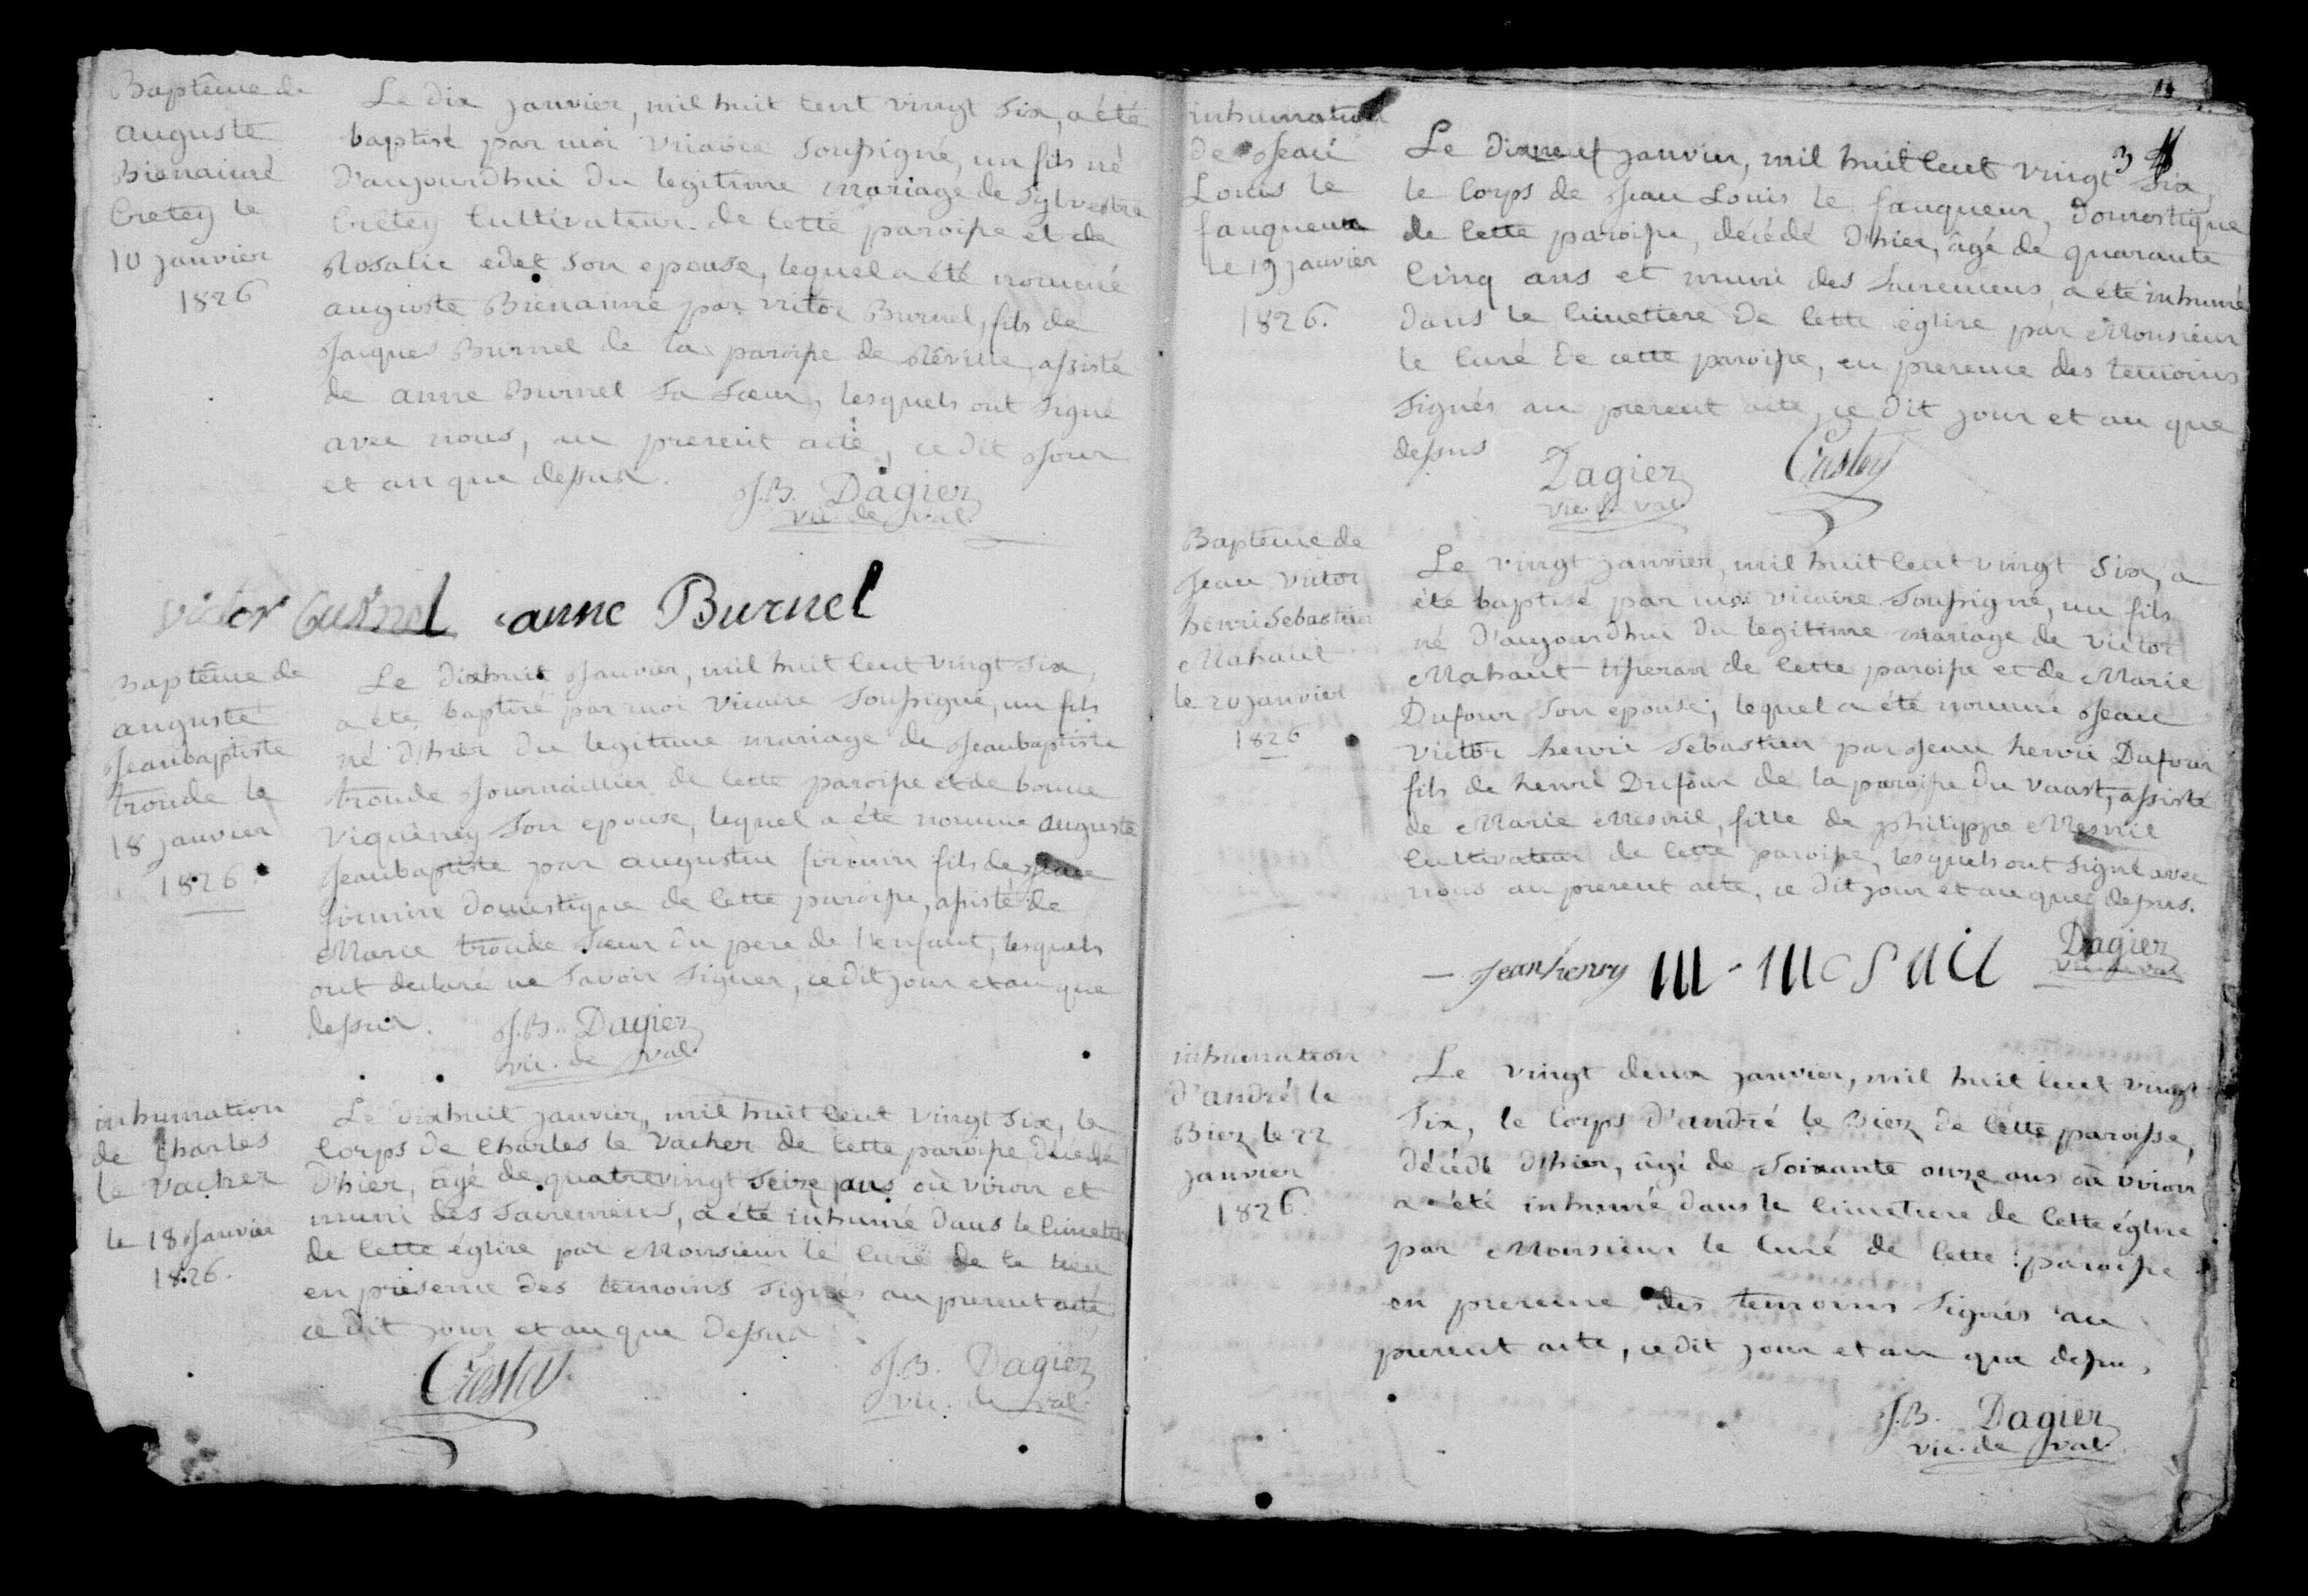 Baptême de
auguste
Bienaimé
Cretey le
10 janvier
1826
Le dix janvier, mil huit cent vingt six, a été
baptisé par moi vicaire soussigné, un fils né
d'aujourdhui du legitime mariage de Sylvestre
Cretey cultivateur de cette paroisse et de
Rosalie edet son epouse, lequel a été nommé
auguste Bienaimé par victor Burnel, fils de
Jacques Burnel de la paroisse de Réville, assisté
de anne Burnel sa soeur, lesquels ont signé
avec nous, au present acte, ce dit jour
et an que dessus.
J.B. Dagier
vic. de val.
victor Burnel anne Burnel
Baptême de
auguste
Jeanbaptiste
troude le
18 janvier
1826.
Le dixhuit janvier, mil huit cent vingt six,
a été baptisé par moi vicaire soussigné, un fils
né d'hier du legitime mariage de Jeanbaptiste
troude journaillier de cette paroisse et de bonne
viqueney son epouse, lequel a été nommé auguste
Jeanbaptiste par augustin firmin fils de
firmin domestique de cette paroisse, assisté de
Marie troude soeur du pere de l'enfant, lesquels
ont declaré ne savoir signer, ce dit jour et an que
dessus.
J.B. Dagier
vic. de val.
inhumation
de Charles
le Vacher
le 18 Janvier
1826.
Le dixhuit janvier, mil huit cent vingt six, le
corps de Charles le Vacher de cette paroisse décédé
d'hier, âgé de quatrevingt seize ans où viron et
muni des sacremens, a été inhumé dans le cimetiere
de cette église par Monsieur le curé de ce lieu
en présence des temoins signés au present acte
ce dit jour et an que dessus.
J.B. Dagier
vic. de val.
3
inhumation
de Jean
Louis le
fauqueur
le 19 janvier
1826.
Le dixneuf janvier, mil huit cent vingt six,
le corps de Jean Louis le fauqueur, domestique
de cette paroisse, décédé d'hier, âgé de quarante
cinq ans et muni des sacremens, a été inhumé
dans le cimetiere de cette église par Monsieur
le curé de cette paroisse, en presence des temoins
signés au present acte, ce dit jour et an que
dessus
Dagier
vic. de val.
Baptême de
Jean Victor
henri Sebastien
Mahaut
le 20 janvier
1826
Le vingt janvier, mil huit cent vingt six, a
été baptisé par moi vicaire soussigné, un fils
né d'aujourdhui du legitime mariage de Victor
Mahaut tisseran de cette paroisse et de Marie
Dufour son epouse, lequel a été nommé Jean
Victor henri Sebastien par Jean henri Dufour
fils de henri Dufour de la paroisse du vaast, assisté
de Marie Mesnil, fille de philippe Mesnil
cultivateur de cette paroisse, lesquels ont signé avec
nous au present acte, ce dit jour et an que dessus.
Jean henry M-Mesnil Dagier
vic. de val
inhumation
d'andré le
Biez le 22
janvier
1826.
Le vingt deux janvier, mil huit cent vingt
six, le corps d'andré le Biez de cette paroisse,
décédé d'hier, âgé de soixante onze ans où viron
a été inhumé dans le cimetiere de cette église
par Monsieur le curé de cette paroisse
en presence des temoins signés au
present acte, ce dit jour et an que dessus,
J.B. Dagier
vic. de val.